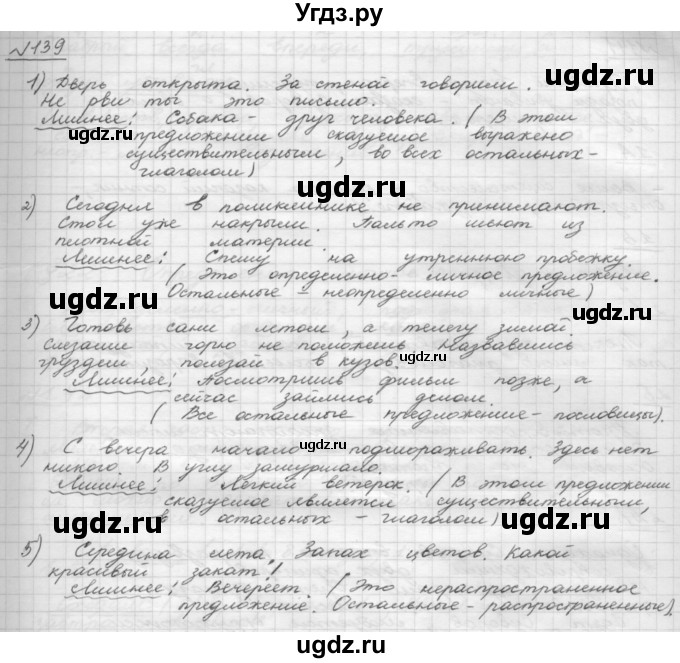 Угдз.ру
№139
1) Дверь открыта. За стеной говорили.
Не рви ты это письмо.
Лишнее: Собака - друг человека. (В этом
предложении сказуемое выражено
существительным, во всех остальных -
глаголом)
2) Сегодня в поликлинике не принимают.
Стол уже накрыли. Пальто шьют из
плотной материи.
Лишнее: Спешу на утреннюю пробежку.
(Это определенно-личное предложение.
Остальные - неопределенно личные)
3) Готовь сани летом, а телегу зимой.
Слезами горю не поможешь. Назвавшись
груздем, полезай в кузов.
Лишнее: Посмотришь фильм позже, а
сейчас займись делом.
(Все остальные предложение - пословицы).
4) С вечера начало подмораживать. Здесь нет
никого. В углу зашуршало.
Лишнее: Легкий ветерок. (В этом предложении
сказуемое является существительным,
в остальных - глаголом)
5) Середина лета. Запах цветов. Какой
красивый закат!
Лишнее: Вечереет. (Это нераспространенное
предложение. Остальные - распространенные).
ugdz.ru
ugdz.ru
ugdz.ru
ugdz.ru
ugdz.ru
ugdz.ru
ugdz.ru
ugdz.ru
ugdz.ru
ugdz.ru
ugdz.ru
ugdz.ru